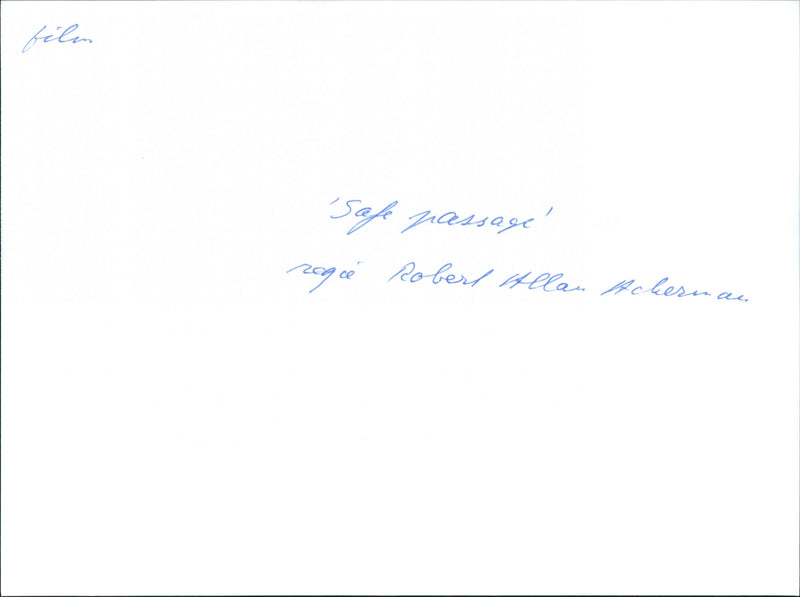 film
'Safe passage'
regie Robert Allan Ackerman